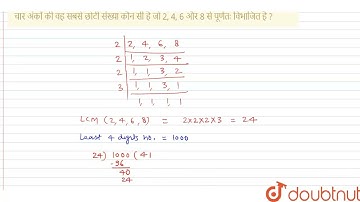 चार अंकों की वह सबसे छोटी संख्या कौन सी है जो 2, 4, 6 और 8 से पूर्णतः विभाजित है ?
2 | 2, 4, 6, 8
2 | 1, 2, 3, 4
2 | 1, 1, 3, 2
3 | 1, 1, 3, 1
1, 1, 1, 1
LCM (2, 4, 6, 8) = 2×2×2×3 = 24
Least 4 digits no. = 1000
24) 1000 ( 41
-96
40
24
doubtnut